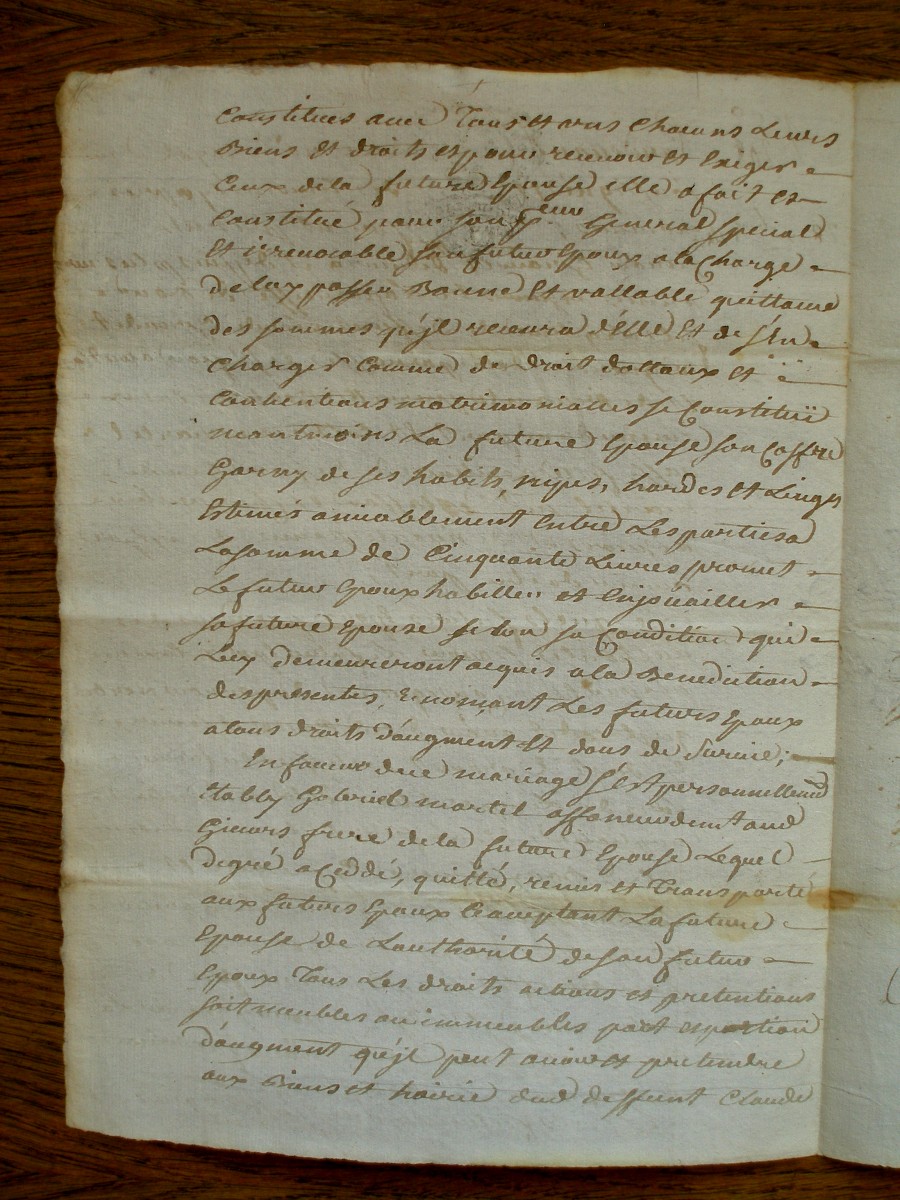 Constitués avec Tous et uns chacuns Leurs
Biens et droits et pour recevoir et Exiger
Ceux de la future Epouse elle a fait et
Constitué pour son P^eur General special
Et irrevocable son futur Epoux a la Charge
de luy passer Bonne Et vallable quittance
des sommes qu'jl recevra d'Elle Et de s'En
Charger Comme de droit dottaux et
Conventions matrimonialles se Constituë
neantmoins La future Epouse son Coffre
Garny de ses habits, nipes, hardes et Linges
Estimés amiablement entre Les parties a
La somme de Cinquante Livres promet
Le futur Epoux habiller et Enjouailler
sa future Epouse selon sa Condition qui
Luy demeureront acquis a la Benediction
des presentes, renonçant Les futurs Epoux
a tous droits d'augment Et dons de survie;
En faveur dud mariage s'Est personnellemt
Etably Gabriel martel affaneur demt aud
Givors frere de la future Epouse Lequel
de gré a Ceddé, quitté, remis et Transporté
aux futurs Epoux acceptant La future
Epouse de L'authorité de son futur
Epoux Tous Les droits actions et pretentions
soit meubles ou immeubles part et portion
d'augment qu'jl peut avoir et pretendre
aux Biens et hoirie dud deffunt Claude